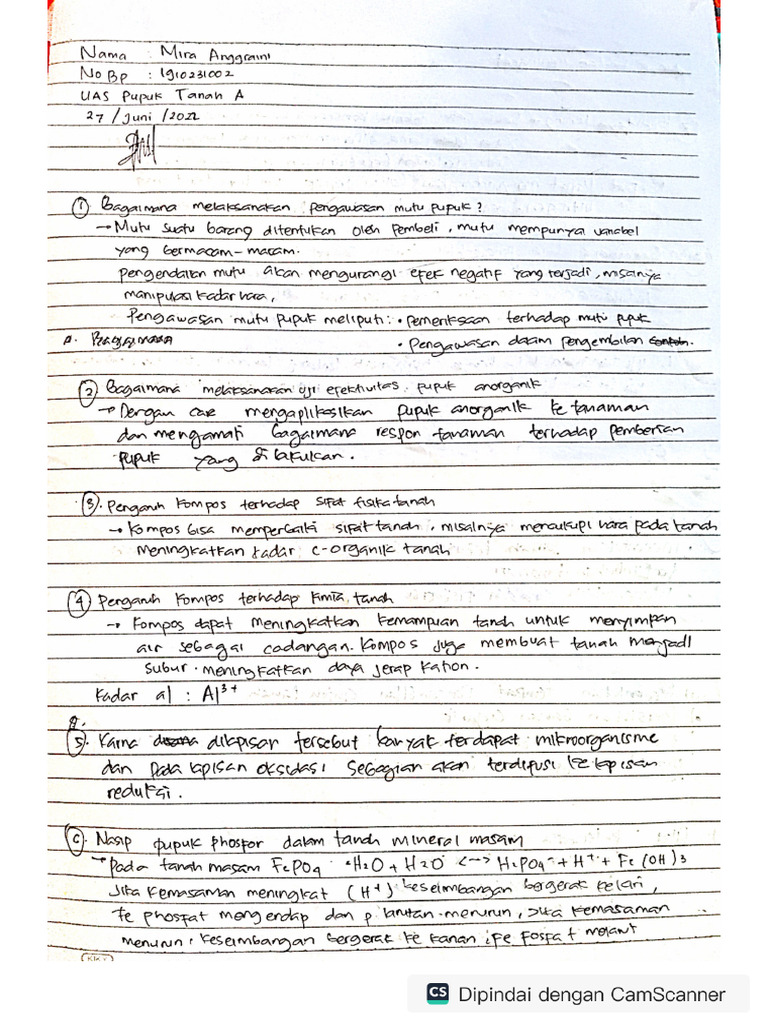 Nama : Mira Anggraini
No Bp : 1910231002
UAS Pupuk Tanah A
27 / Juni / 2022
① Bagaimana melaksanakan pengawasan mutu pupuk?
→ Mutu suatu barang ditentukan oleh pembeli, mutu mempunyai variabel
yang bermacam-macam.
pengendalian mutu akan mengurangi efek negatif yang terjadi, misalnya
manipulasi kadar hara,
Pengawasan mutu pupuk meliputi: • pemeriksaan terhadap mutu pupuk
• Pengawasan dalam pengembilan contoh.
② Bagaimana melaksanakan uji efektivitas pupuk anorganik
→ Dengan care mengaplikasikan pupuk anorganik ke tanaman
dan mengamati bagaimana respon tanaman terhadap pemberian
pupuk yang di lakukan.
③. Pengaruh kompos terhadap sifat fisika tanah
→ Kompos bisa memperbaiki sifat tanah, misalnya mencukupi hara pada tanah
meningkatkan kadar c-organik tanah
④ Pengaruh kompos terhadap kimia tanah
→ Kompos dapat meningkatkan kemampuan tanah untuk menyimpan
air sebagai cadangan. Kompos juga membuat tanah menjadi
subur. meningkatkan daya jerap kation.
Kadar al : Al³⁺
⑤. Karna dilapisan tersebut banyak terdapat mikroorganisme
dan pada lapisan oksidasi sebagian akan terdifusi ke lapisan
reduksi.
⑥. Nasip pupuk phosfor dalam tanah mineral masam
→ pada tanah masam FePO4 · H2O + H2O <--> H2PO4⁻ + H⁺ + Fe(OH)3
Jika kemasaman meningkat (H⁺) keseimbangan bergerak kekiri,
fe phosfat mengendap dan p larutan menurun, Jika kemasaman
menurun, keseimbangan bergerak ke kanan, Fe fosfat melarut
KIKY
CS Dipindai dengan CamScanner